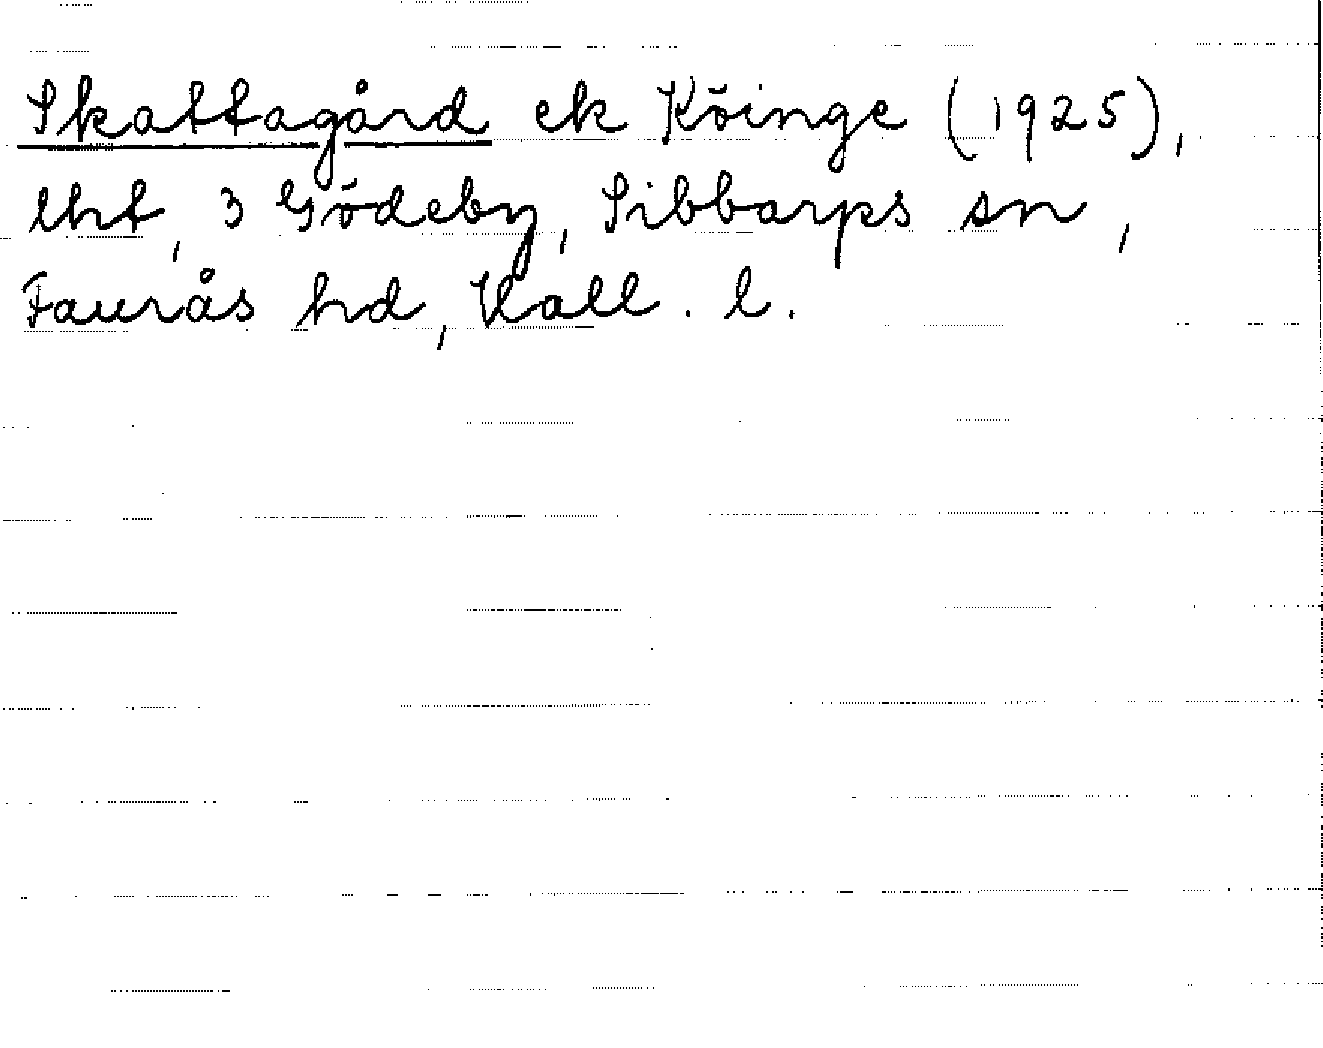 Skattagård ek Köinge (1925),
lht, 3 Gödeby, Sibbarps sn,
Faurås hd, Hall. l.